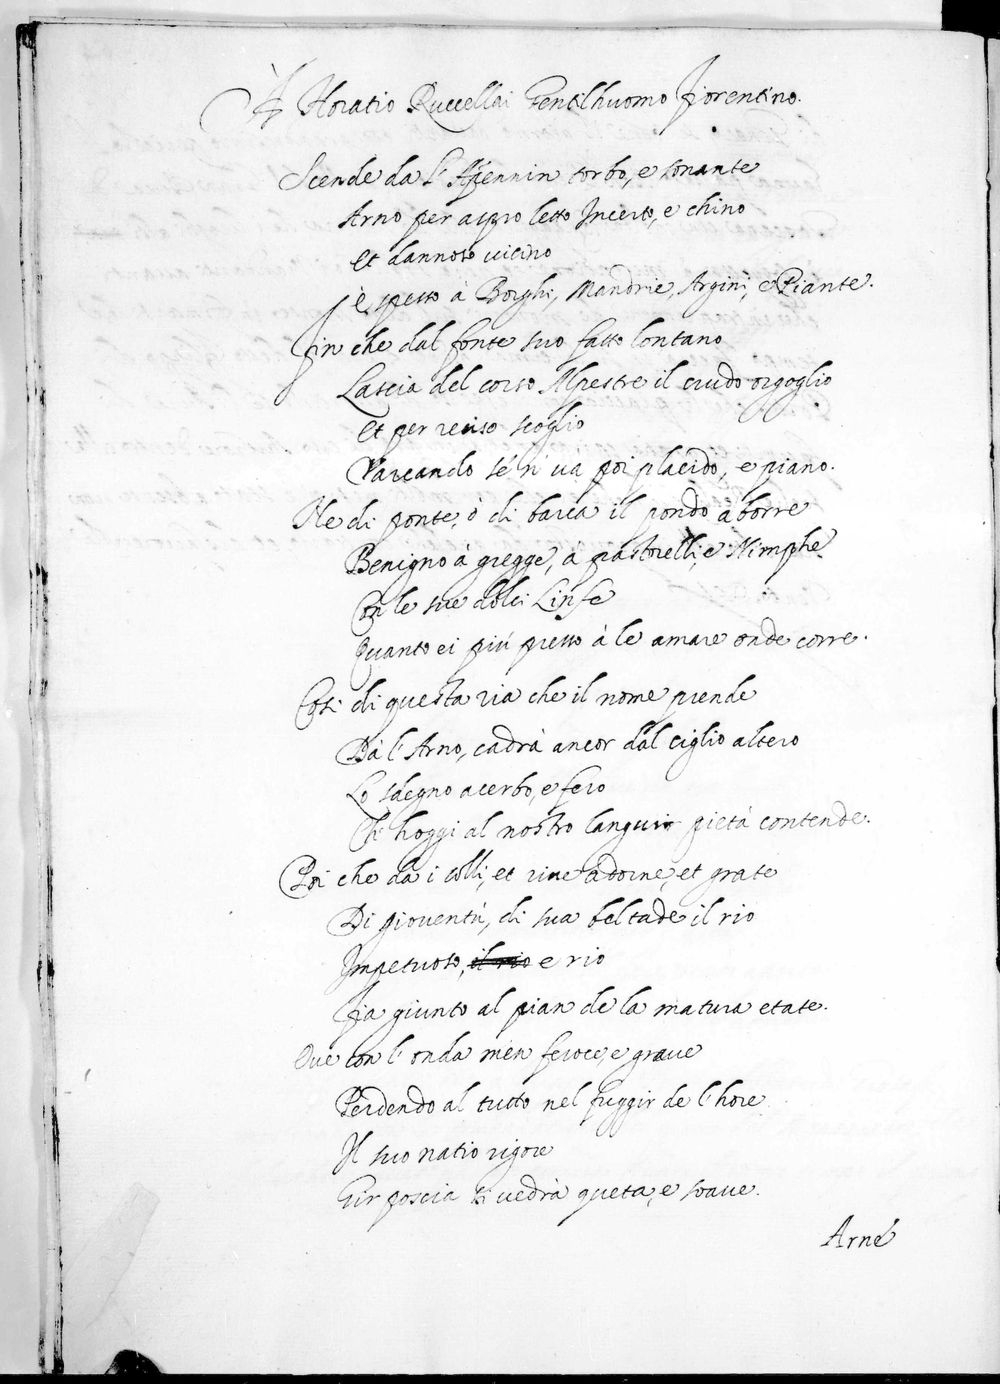 A Horatio Ruccellai Gentilhuomo fiorentino.
Scende da l' Apennin torbo, e sonante
Arno per aspro letto Incerto, e chino
Et dannoso uicino
È spesso à Borghi, Mandrie, Argini, e Piante.
Fin che dal fonte suo fatto lontano
Lascia del corso Alpestre il crudo orgoglio
Et per reciso scoglio
Varcando sè n' ua poi placido, e piano.
Ne di ponte, ò di barca il pondo aborre
Benigno à gregge, à pastorelli, e Nimphe
Con le sue dolci Linfe
Quanto ei più presso à le amare onde corre.
Cosi di questa ria che il nome prende
Dà l' Arno, cadrà ancor dal ciglio altero
Lo sdegno acerbo, e fero
Ch' hoggi al nostro languir pietà contende.
Poi che da i colli, et riue adorne, et grate
Di gioventù, di sua beltade il rio
Impetuoso, il rio e rio
Fia giunto al pian de la matura etate.
Oue con l' onda men feroce, e graue
Perdendo al tutto nel fuggir de l' hore
Il suo natio rigore
Gir poscia si vedrà queta, e soaue.
Arne